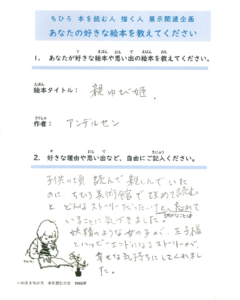 ちひろ 本を読む人 描く人 展示関連企画
あなたの好きな絵本を教えてください
1. あなたが好きな絵本や思い出の絵本を教えてください。
絵本タイトル: 親ゆび姫
作者: アンデルセン
2. 好きな理由や思い出など、ご自由にご記入ください。
子供の頃 読んで親しんでいた
のに ちひろ美術館で改めて読む
と どんなストーリーだったか
いることに気づきました。
妖精のような女の子が、王子様
とハッピーエンドになるストーリーが、
幸せな気持ちにしてくれまし
た。
いわさきちひろ 本を読む少女